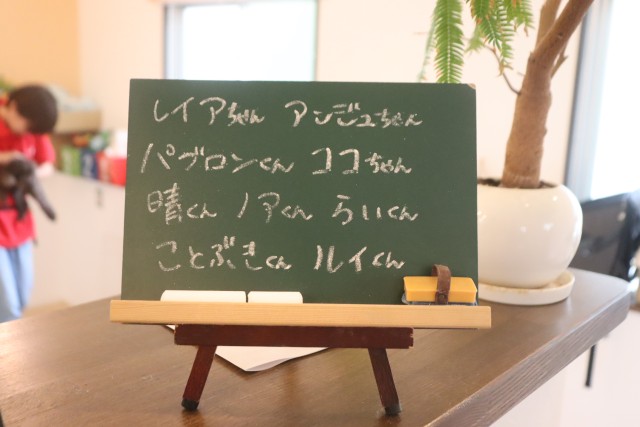 レイアちゃん アンジュちゃん
パブロンくん ココちゃん
晴くん ノアくん らいくん
ことぶきくん ルイくん